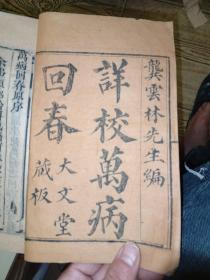 龔雲林先生編
詳校萬病
回春
大文堂
藏板
萬病回春原序